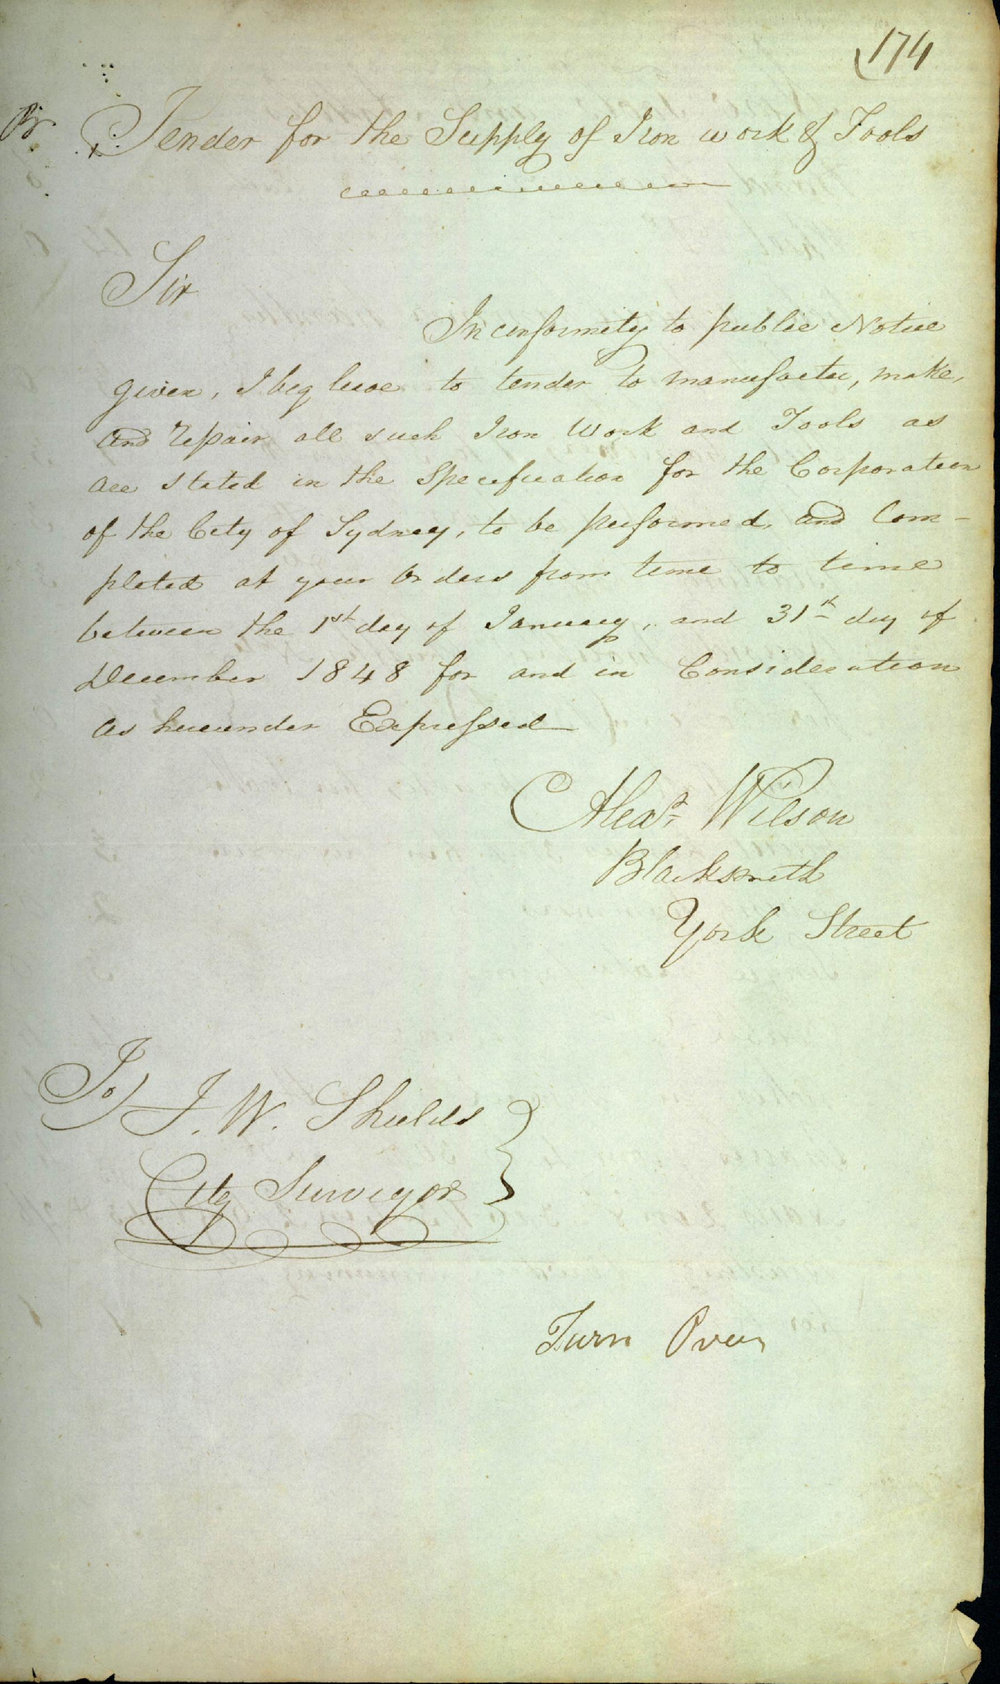 174
Tender for the Supply of Iron work & Tools
Sir
In conformity to public Notice
given, I beg leave to tender to manufactu, make,
and repair all such Iron Work and Tools as
are stated in the Specification for the Corporation
of the City of Sydney, to be performed and Com-
pleted at your Orders from time to time
between the 1st day of January, and 31st day of
December 1848 for and in Consideration
as hereunder Expressed
Alexr. Wilson
Blacksmith
York Street
To J. W. Shields
City Surveyor
Turn Over